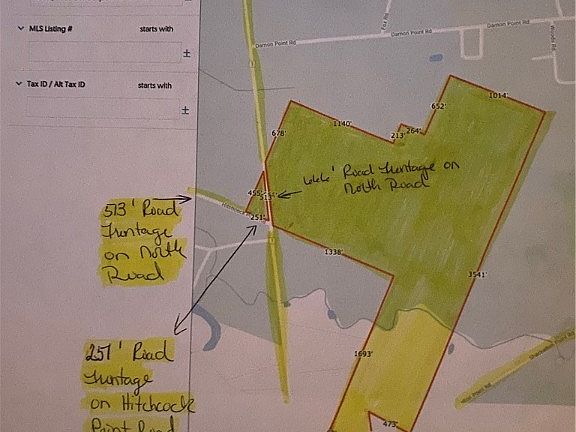 MLS Listing # starts with
±
Tax ID / Alt Tax ID starts with
±
Damon Point Rd
Damon Point Rd
Damon Point Rd
Fox Rd
Rounds Rd
1014'
652'
264'
213'
1140'
678'
455'
513'
251'
666' Road Frontage on
North Road
513' Road
Frontage
on North
Road
1338'
3541'
1693'
473'
251' Road
Frontage
on Hitchcock
Point Road